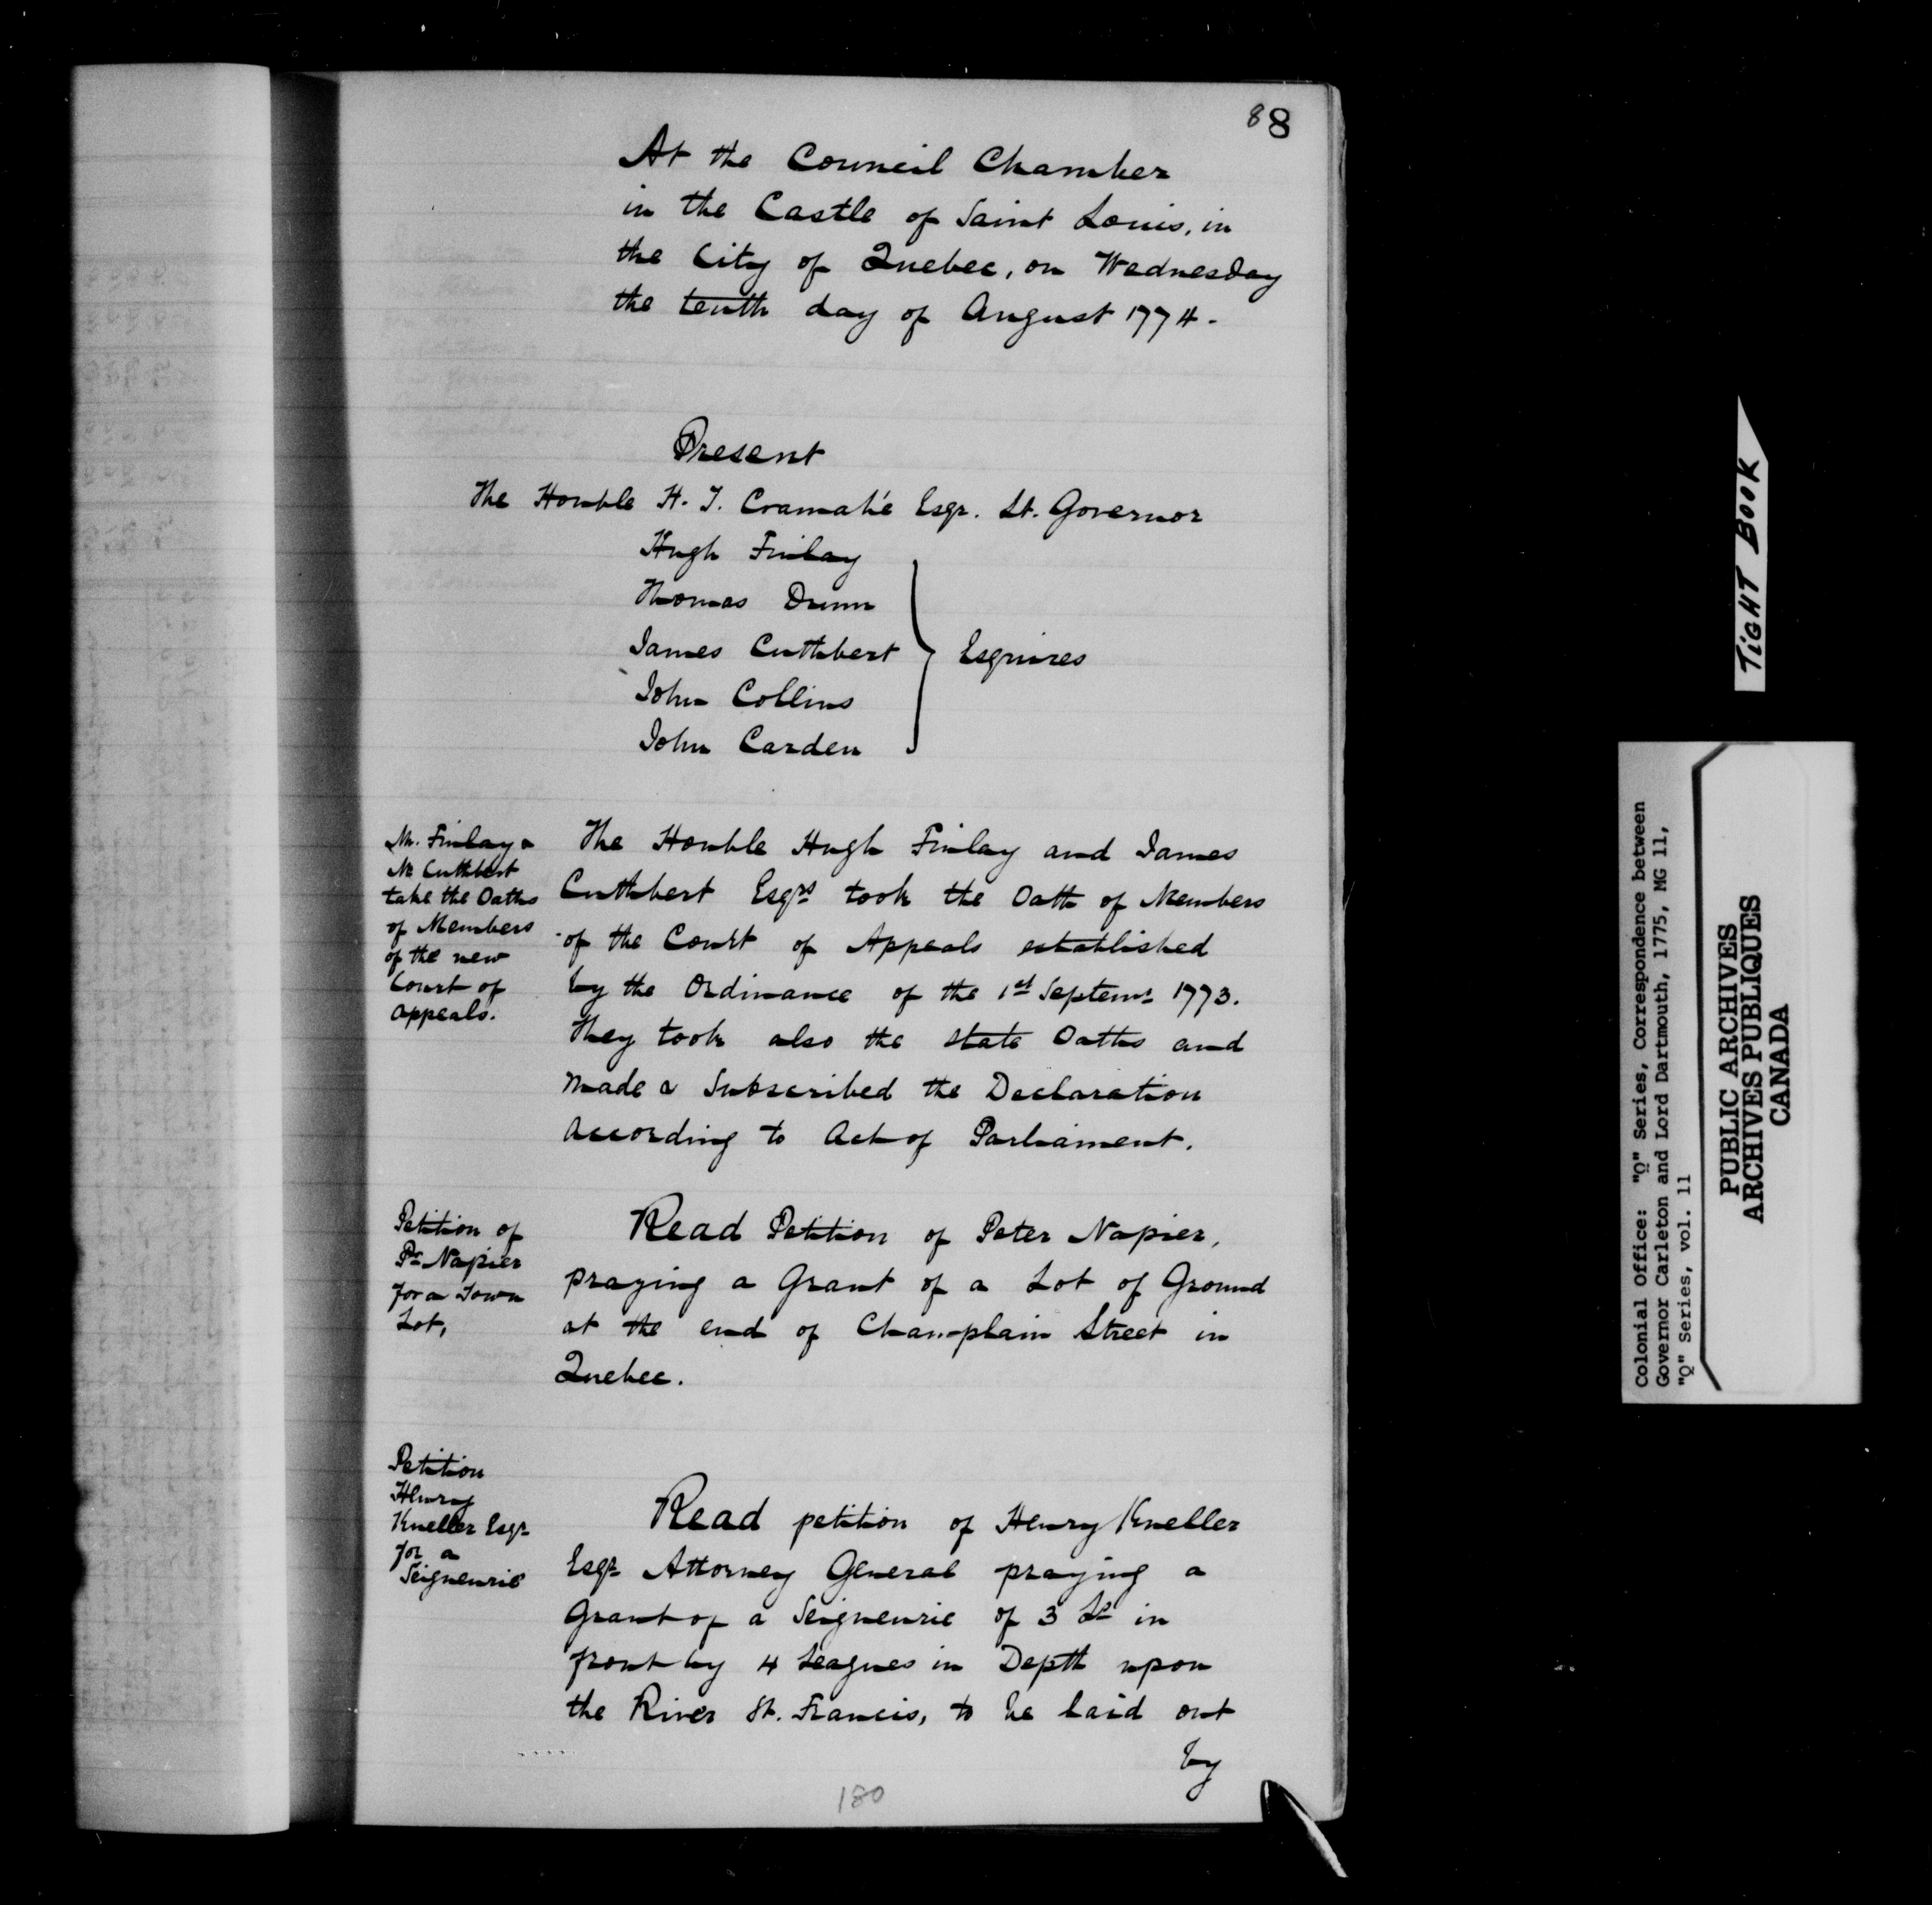 88
At the Council Chamber
in the Castle of Saint Louis, in
the City of Quebec, on Wednesday
the tenth day of August 1774.
Present
The Honble H. T. Cramahé Esqr. Lt. Governor
Hugh Finlay
Thomas Dunn
James Cuthbert
Esquires
John Collins
John Carden
Mr. Finlay &
Mr Cuthbert
take the Oaths
of Members
of the new
Court of
appeals.
The Honble Hugh Finlay and James
Cuthbert Esqrs took the Oath of Members
of the Court of Appeals established
by the Ordinance of the 1st Septemr 1773.
They took also the state Oaths and
made & Subscribed the Declaration
according to Act of Parliament.
Petition of
Pr Napier
for a Town
Lot,
Read Petition of Peter Napier,
praying a Grant of a Lot of Ground
at the end of Champlain Street in
Quebec.
Petition
Henry
Kneller Esqr
for a
Seigneurie
Read petition of Henry Kneller
Esqr Attorney General praying a
Grant of a Seigneurie of 3 Ls in
front by 4 Leagues in Depth upon
the River St. Francis, to be laid out
by
180
TIGHT BOOK
Colonial Office: "Q" Series, Correspondence between
Governor Carleton and Lord Dartmouth, 1775, MG 11,
"Q" Series, vol. 11
PUBLIC ARCHIVES
ARCHIVES PUBLIQUES
CANADA